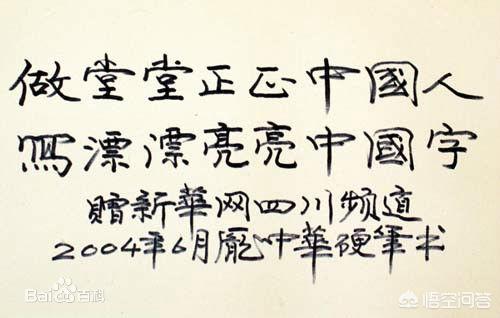 做堂堂正正中國人
寫漂漂亮亮中國字
贈新華网四川频道
2004年6月龐中華硬筆书
Baidu百科
悟空问答